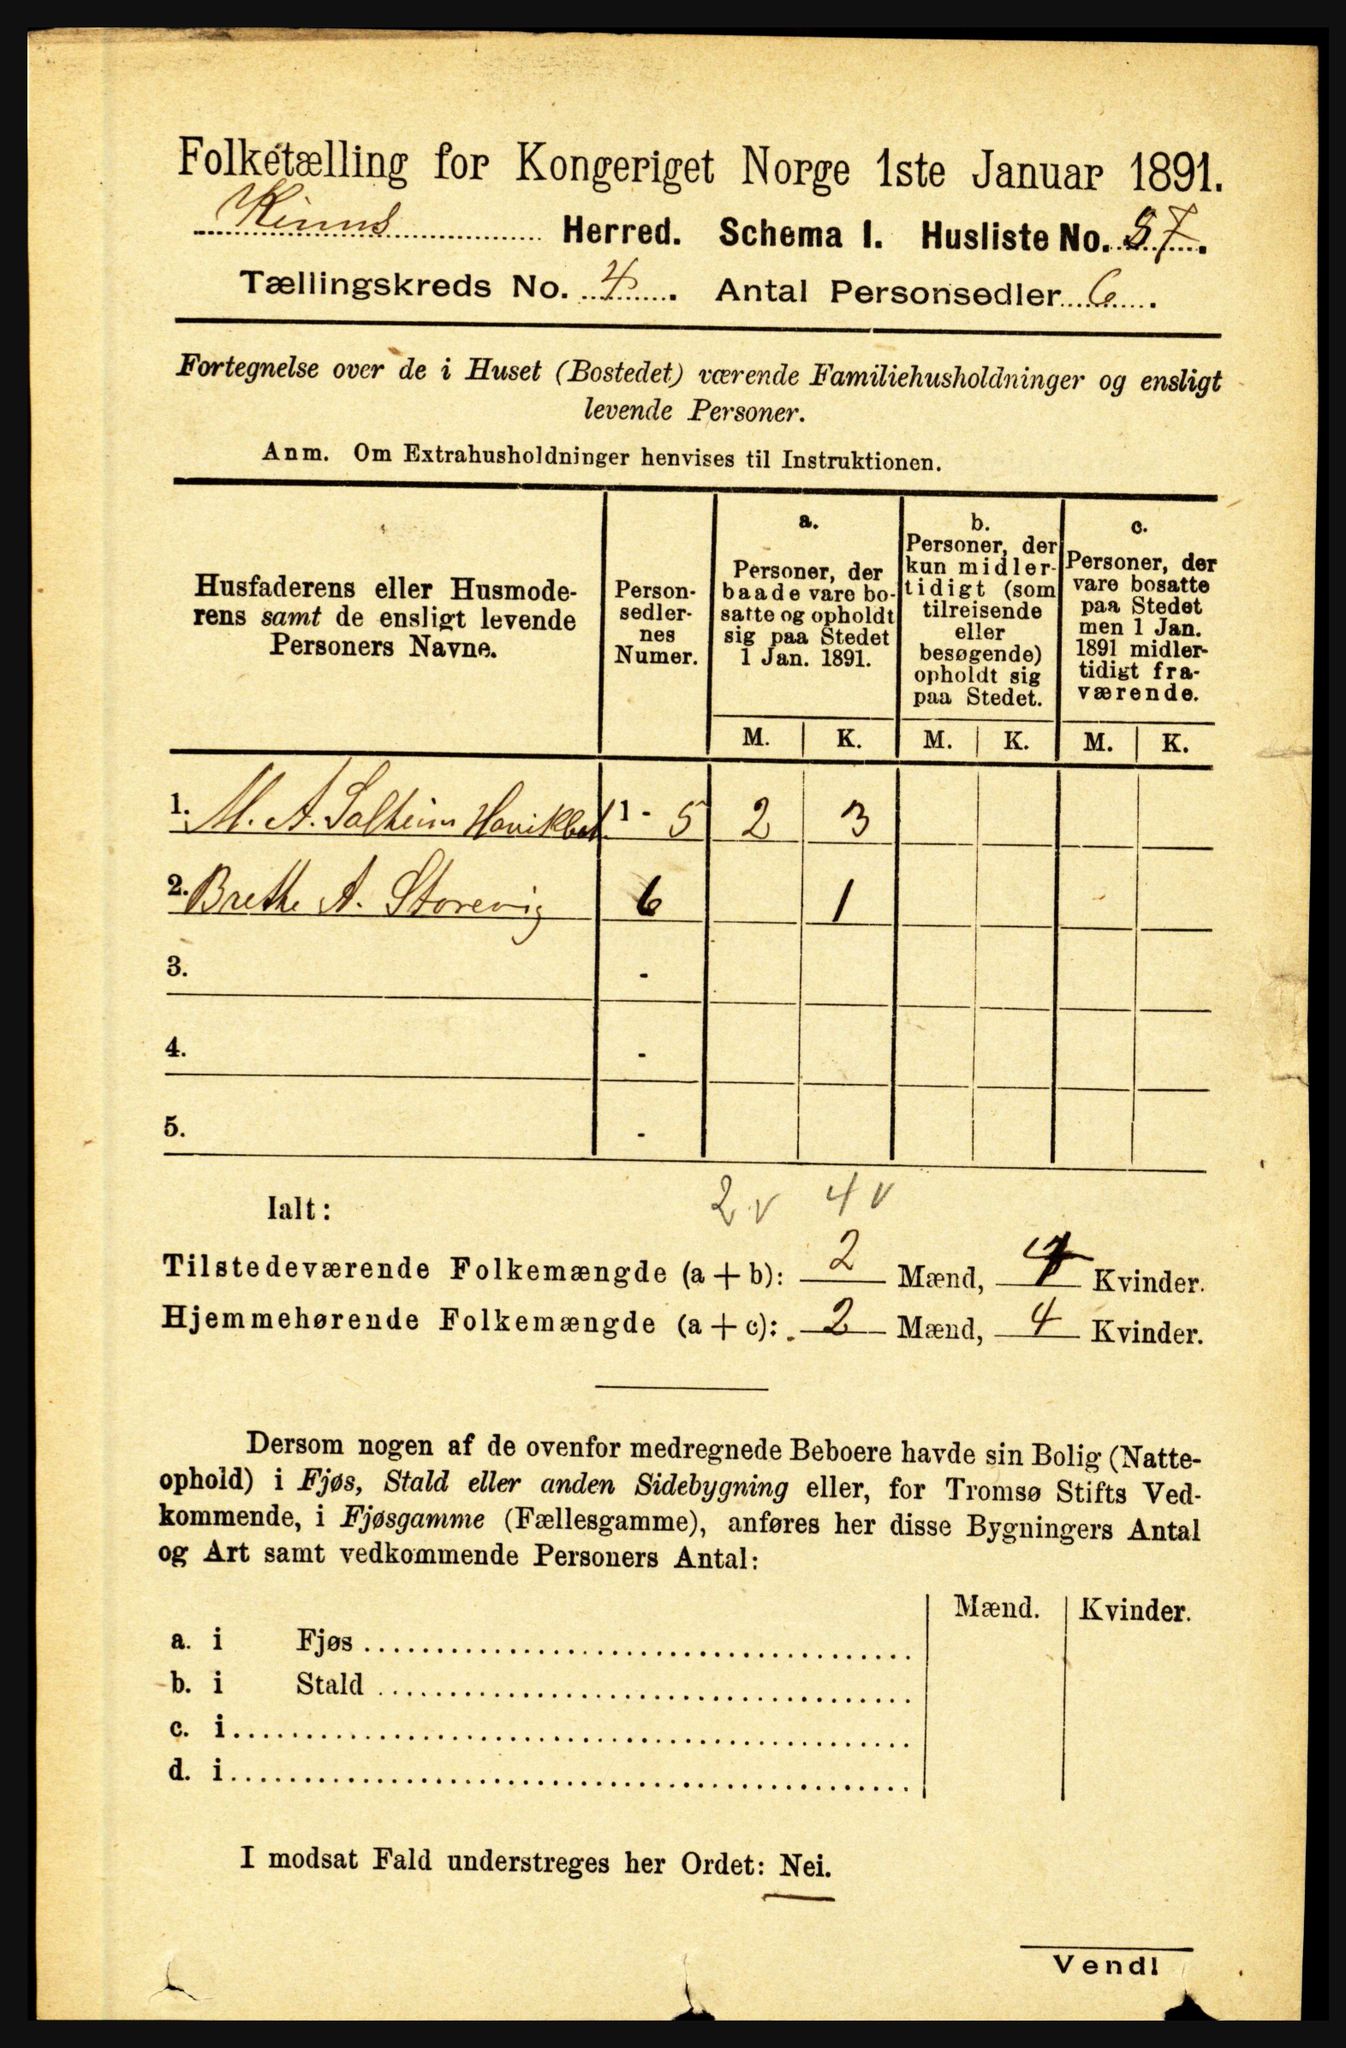 Folketælling for Kongeriget Norge 1ste Januar 1891.
Kinns Herred. Schema I. Husliste No. 37.
Tællingskreds No. 4. Antal Personsedler 6.
Fortegnelse over de i Huset (Bostedet) værende Familiehusholdninger og ensligt
levende Personer.
Anm. Om Extrahusholdninger henvises til Instruktionen.
Husfaderens eller Husmode-
rens samt de ensligt levende
Personers Navne.
Person-
sedler-
nes
Numer.
a.
Personer, der
baade vare bo-
satte og opholdt
sig paa Stedet
1 Jan. 1891.
b.
Personer, der
kun midler-
tidigt (som
tilreisende
eller
besøgende)
opholdt sig
paa Stedet.
c.
Personer, der
vare bosatte
paa Stedet
men 1 Jan.
1891 midler-
tidigt fra-
værende.
M. K. M. K. M. K.
1. M. A. Solheim 1 - 5 2 3
2. Brethe A. Storevig 6 1
3. -
4. -
5. -
2 v 4 v
Ialt:
Tilstedeværende Folkemængde (a + b): 2 Mænd, 4 Kvinder.
Hjemmehørende Folkemængde (a + c): 2 Mænd, 4 Kvinder.
Dersom nogen af de ovenfor medregnede Beboere havde sin Bolig (Natte-
ophold) i Fjøs, Stald eller anden Sidebygning eller, for Tromsø Stifts Ved-
kommende, i Fjøsgamme (Fællesgamme), anføres her disse Bygningers Antal
og Art samt vedkommende Personers Antal:
Mænd. Kvinder.
a. i Fjøs
b. i Stald
c. i
d. i
I modsat Fald understreges her Ordet: Nei.
Vend!